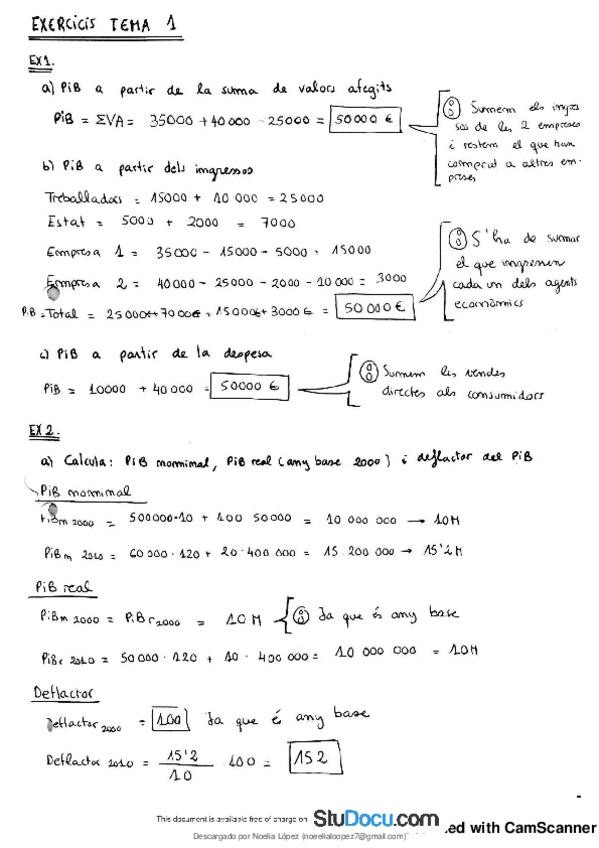 EXERCICIS TEMA 1
EX1.
a) PiB a partir de la suma de valors afegits
PiB = ΣVA = 35000 + 40000 - 25000 = 50000 €
Sumem els ingre
sos de les 2 empreses
i restem el que han
comprat a altres em-
preses
b) PiB a partir dels ingressos
Treballadors = 15000 + 10 000 = 25000
Estat = 5000 + 2000 = 7000
Empresa 1 = 35000 - 15000 - 5000 = 15000
Empresa 2 = 40000 - 25000 - 2000 - 10 000 = 3000
PiB = Total = 25000€ + 7000€ + 15000€ + 3000€ = 50 000 €
S'ha de sumar
el que ingressen
cada un dels agents
econòmics
c) PiB a partir de la despesa
PiB = 10000 + 40 000 = 50000 €
Sumem les vendes
directes als consumidors
EX 2.
a) Calcula: PiB nominal, PiB real (any base 2000) i deflactor del PiB
PiB nominal
PiBn 2000 = 500000·10 + 100 50000 = 10 000 000 → 10M
PiBn 2010 = 60 000 · 120 + 20 · 400 000 = 15 200 000 → 15'2 M
PiB real
PiBn 2000 = PiBr 2000 = 10 M Ja que és any base
PiBr 2010 = 50 000 · 120 + 10 · 400 000 = 10 000 000 = 10M
Deflactor
Deflactor 2000 = 100 Ja que é any base
Deflactor 2010 = 15'2 / 10 · 100 = 152
This document is available free of charge on StuDocu.com
Descargado por Noelia López (noeelialoopez7@gmail.com)
ed with CamScanner